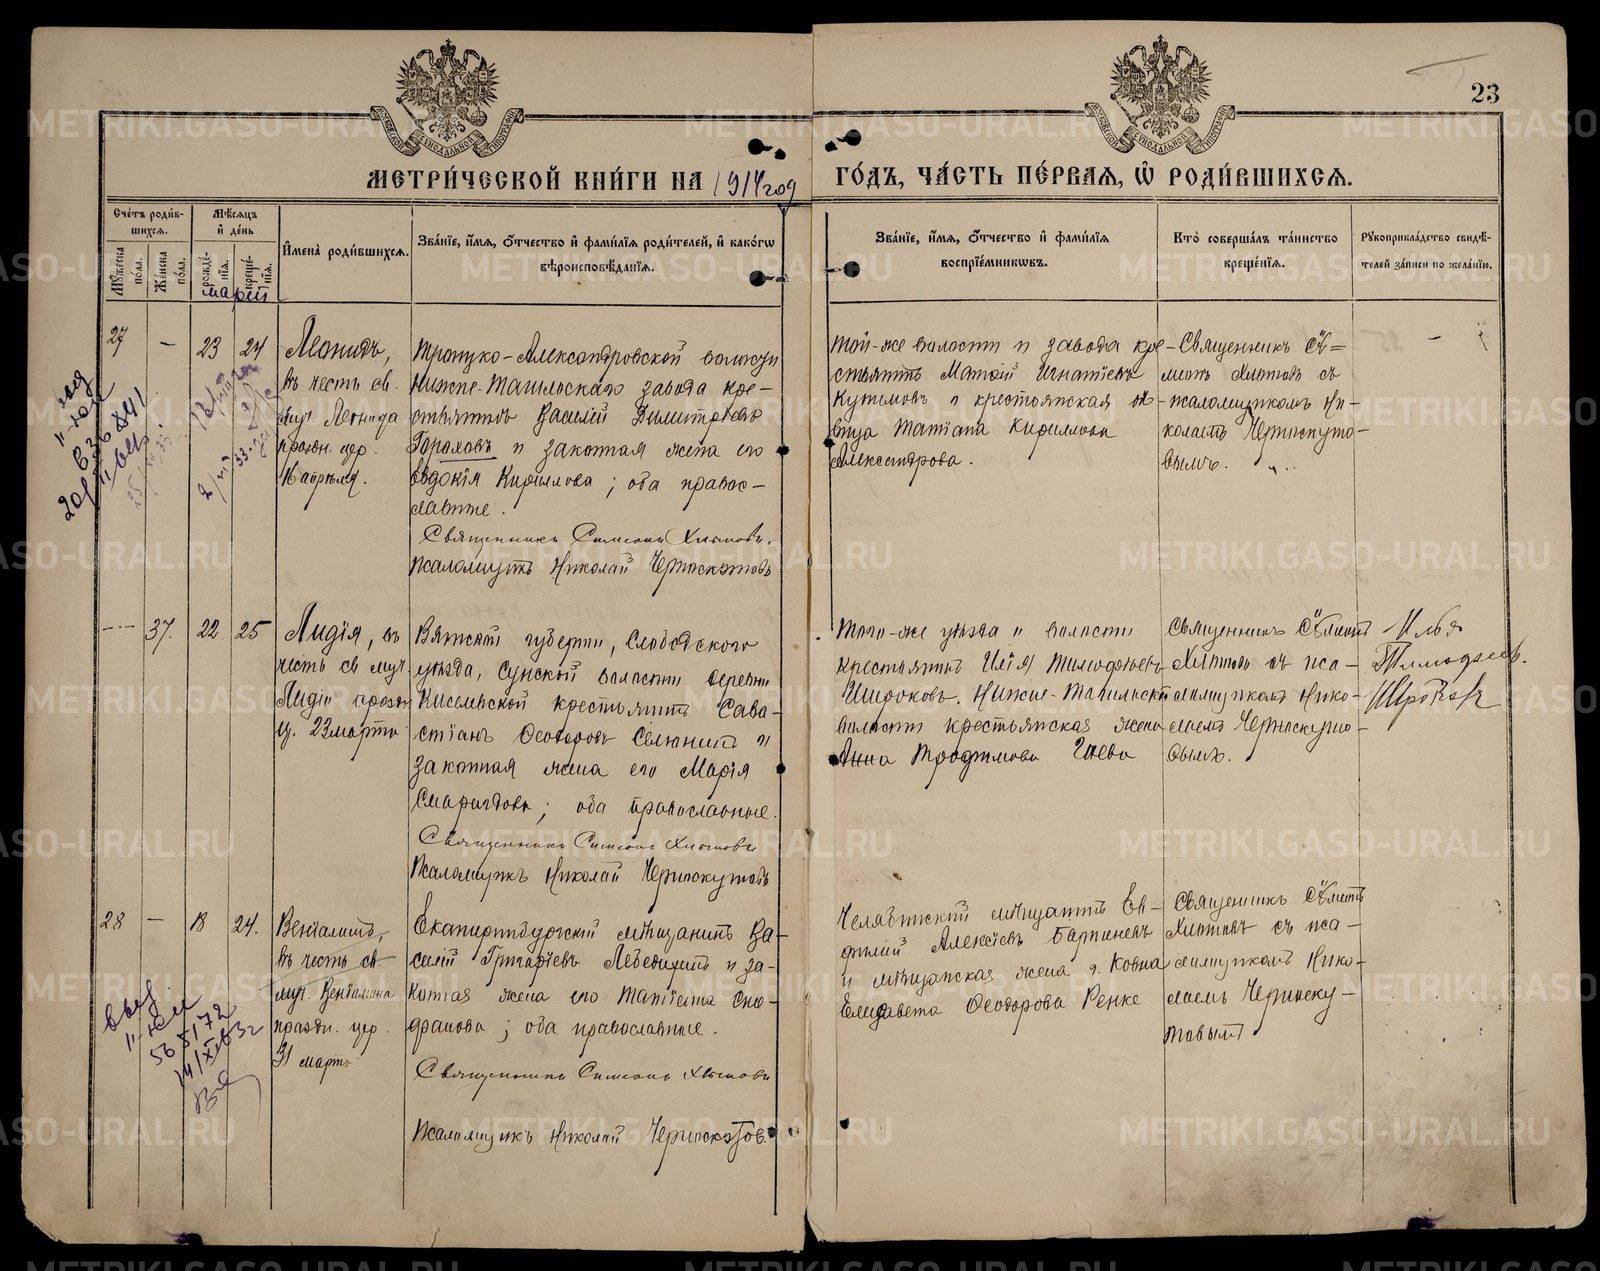 МЕТРИ́ЧЕСКОЙ КНИ́ГИ НА 1914 год
ГО́ДЪ, ЧА́СТЬ ПЕ́РВАЯ, Ѿ РОДИ́ВШИХСЯ.
23
Сче́тъ роди́в-
шихся.
Мѣ́сяцъ
и҆ де́нь
Мꙋ́жеска
пола.
Же́нска
пола.
рожде́-
нїѧ.
креще́-
нїѧ.
мартъ
И҆мена̀ роди́вшихся.
Зва́нїе, и҆́мя, ѻ҆́тчество и҆ фами́лїя роди́телей, и҆ како́гѡ
вѣроисповѣ́данїя.
Зва́нїе, и҆́мя, ѻ҆́тчество и҆ фами́лїя
воспрїе́мникѡвъ.
Кто̀ соверша́лъ та́инство
креще́нїя.
Рꙋкоприкла́дство свидѣ́-
телей за́писи по жела́нїю.
27 — 23 24
Леонидъ,
въ честь св.
муч. Леонида
праздн. цер.
Троицко-Александровской волости
Нижне-Тагильскаго завода кре-
стьянинъ Василій Димитріевъ
Гораховъ и законная жена его
Евдокія Кириллова; оба право-
славные.
Священникъ Симеонъ Хлыновъ.
Псаломщикъ Николай Черноскутовъ
Той-же волости и завода кре-
стьянинъ Матвій Игнатіевъ
и крестьянская дѣ-
вица Татіана Кириллова
Александрова.
Священникъ Сѵ=
меонъ Хлыновъ съ
псаломщикомъ Ни-
колаемъ Черноскуто-
вымъ.
—
37. 22 25
Лидія, въ
честь св. муч.
Лидіи праздн.
ц. 23 марта
Вятской губерніи, Слободскаго
уѣзда, Сунской волости деревни
Киселевской крестьянинъ Сава-
стіанъ Ѳеодоровъ Селюнинъ и
законная жена его Марія
Смарагдова; оба православные.
Священникъ Симеонъ Хлыновъ
Псаломщикъ Николай Черноскутовъ
Того-же уѣзда и волости
крестьянинъ Илія Тимофеевъ
Широковъ. Нижне-Тагильской
волости крестьянская жена
Анна Трофимова Гаева
Священникъ Сѵмеонъ
Хлыновъ съ пса-
ломщикомъ Нико-
лаемъ Черноскуто-
вымъ.
Илья
Тимофеев.
Широковъ
28 — 18 24.
Веніаминъ,
въ честь св.
муч. Веніамина
праздн. цер.
31 марта
Екатеринбургскій мѣщанинъ Ва-
силій Григоріевъ Лебедкинъ и за-
конная жена его Татіана
; оба православные.
Священникъ Симеонъ Хлыновъ
Псаломщикъ Николай Черноскутов.
Челябинскій мѣщанинъ Ев-
фимій Алексіевъ Бартеневъ
и мѣщанская жена г. Ковна
Елисавета Ѳеодорова Ренке
Священникъ Сѵмеонъ
Хлыновъ съ пса-
ломщикомъ Нико-
лаемъ Черноску-
товымъ
METRIKI.GASO-URAL.RU